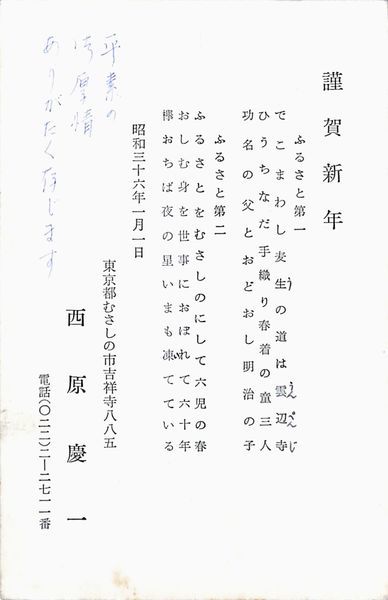 謹賀新年
ふるさと第一
でこまわし麦生うの道は雲辺寺えんじ
ひうちなだ手織り春着の童三人
功名の父とおどおし明治の子
ふるさと第二
ふるさとをむさしのにして六児の春
おしむ身を世事におぼれて六十年
欅おちば夜の星いまも凍てている
昭和三十六年一月一日
東京都むさしの市吉祥寺八八五
西原慶一
電話(〇二二)二ー二七一一番
平素の
御厚情
ありがたく存じます